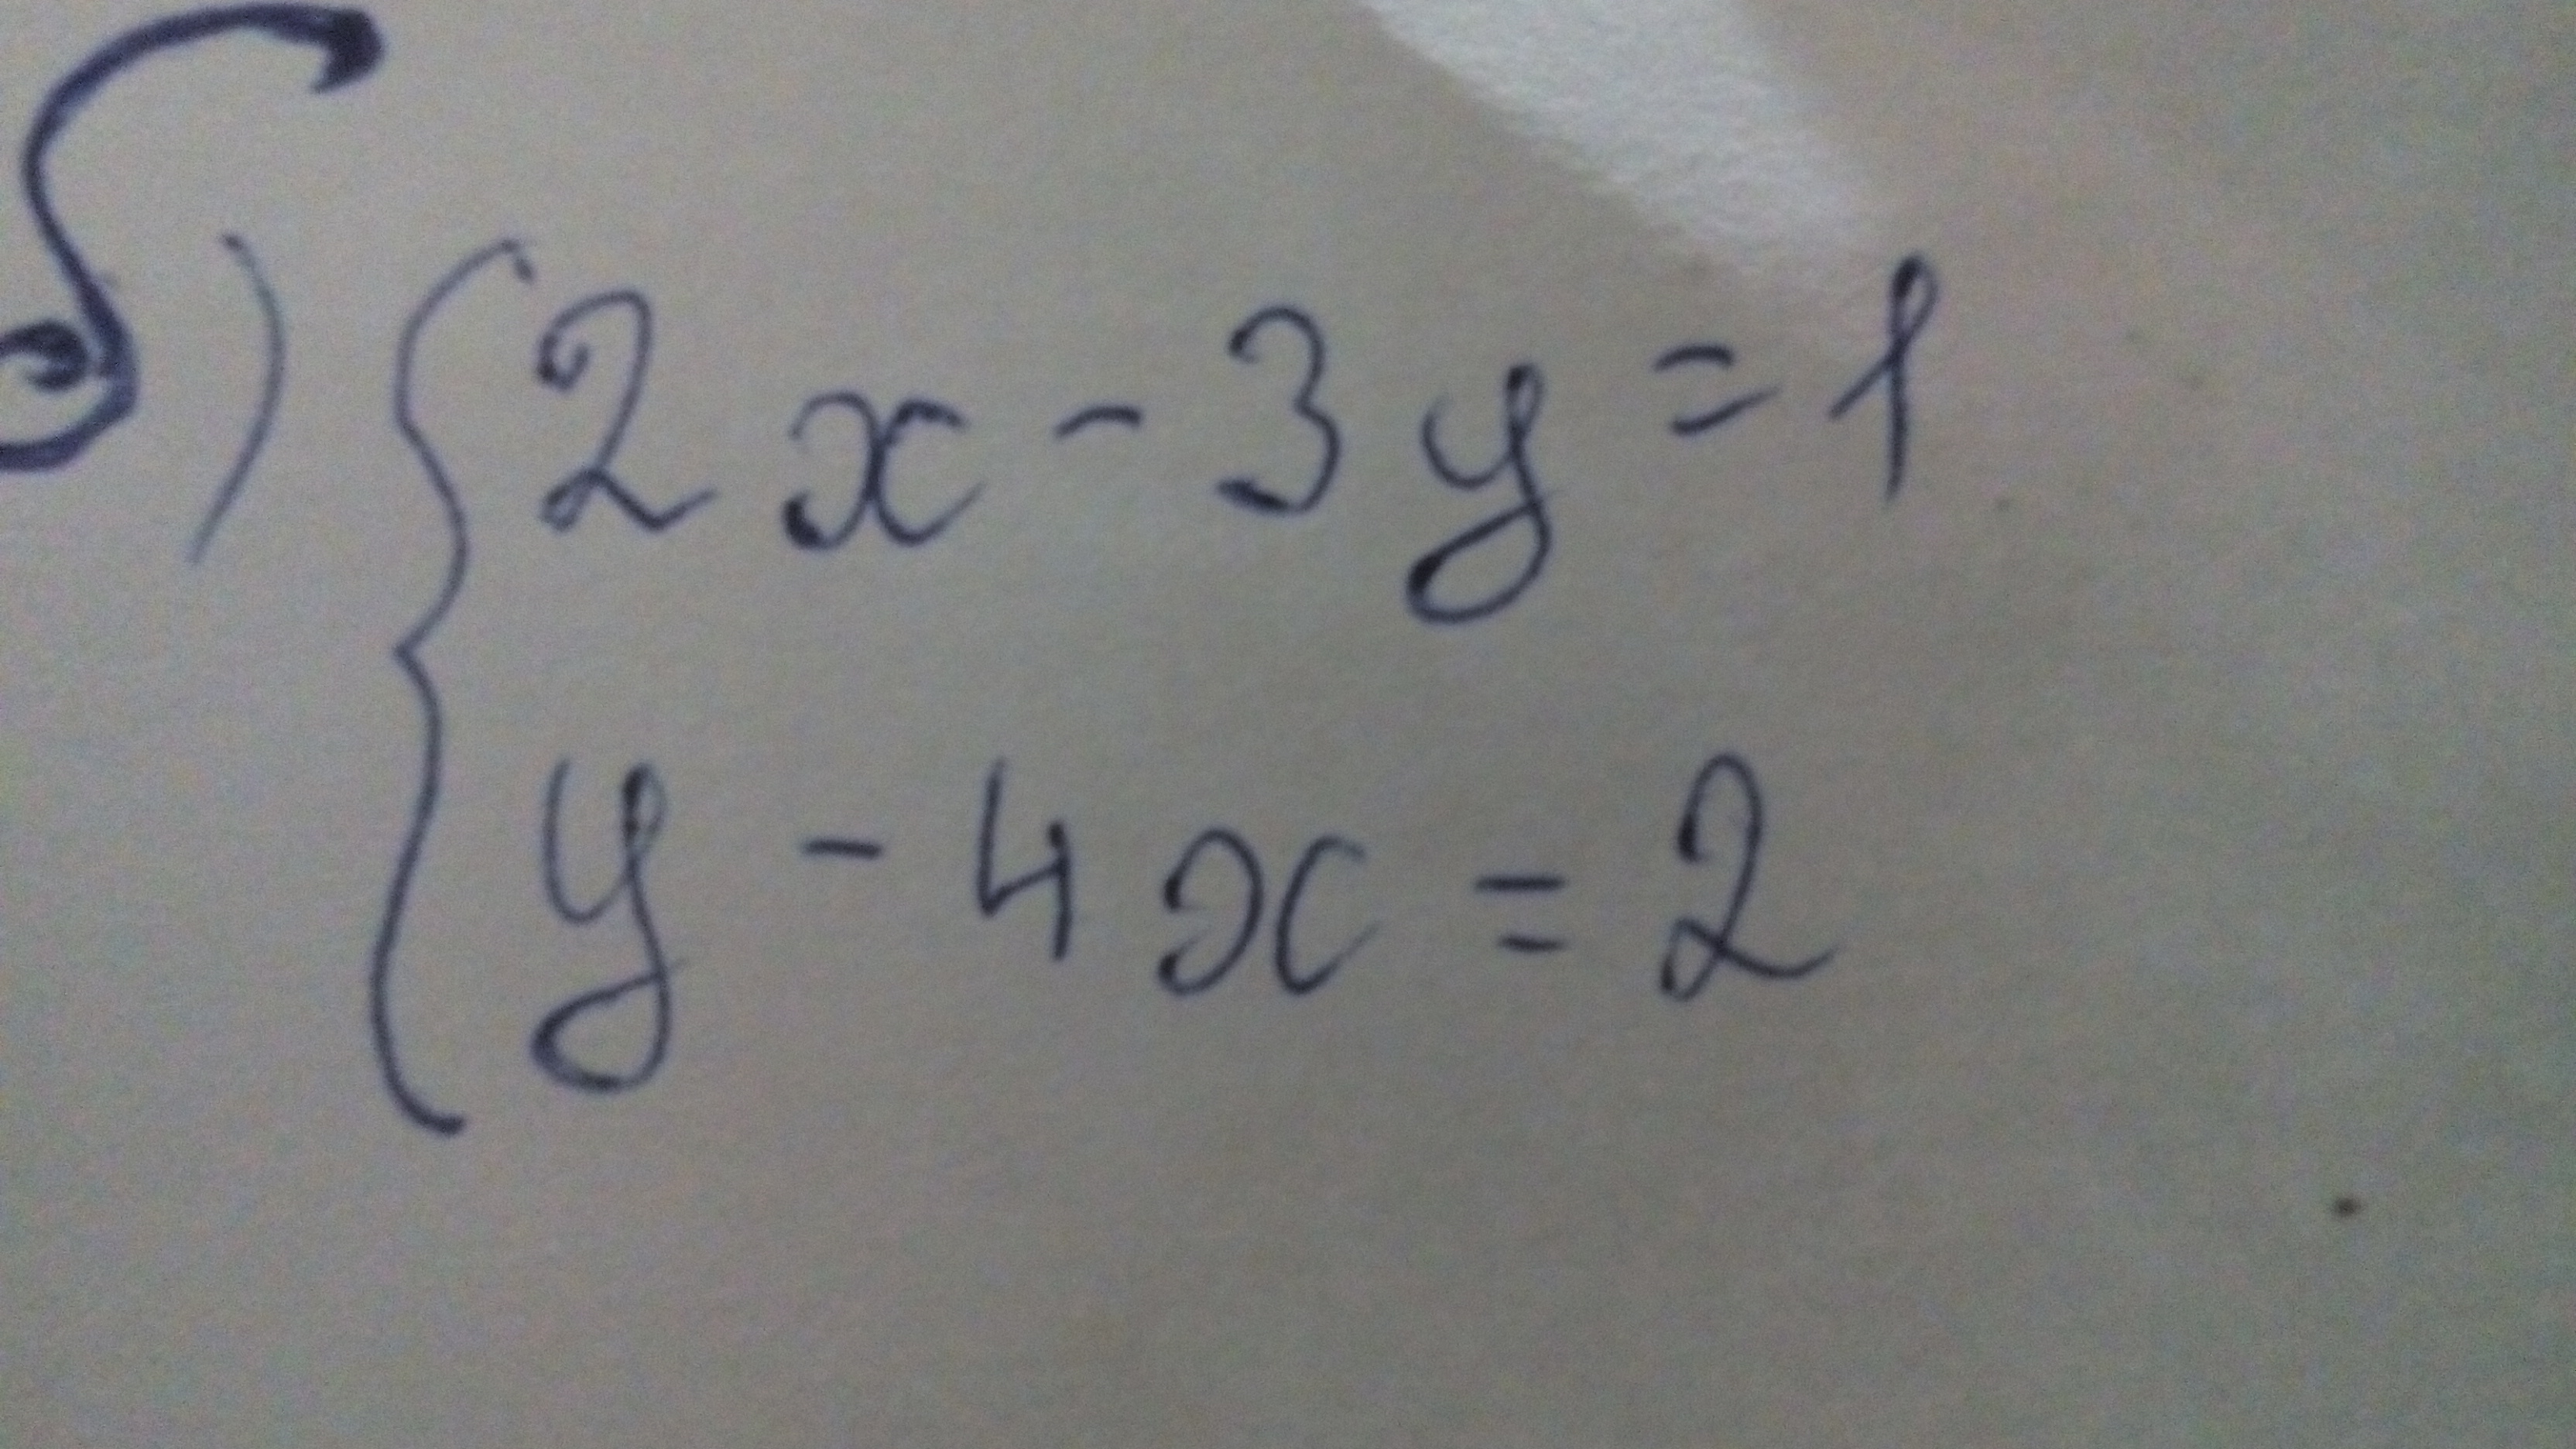 б) { 2x - 3y = 1
y - 4x = 2